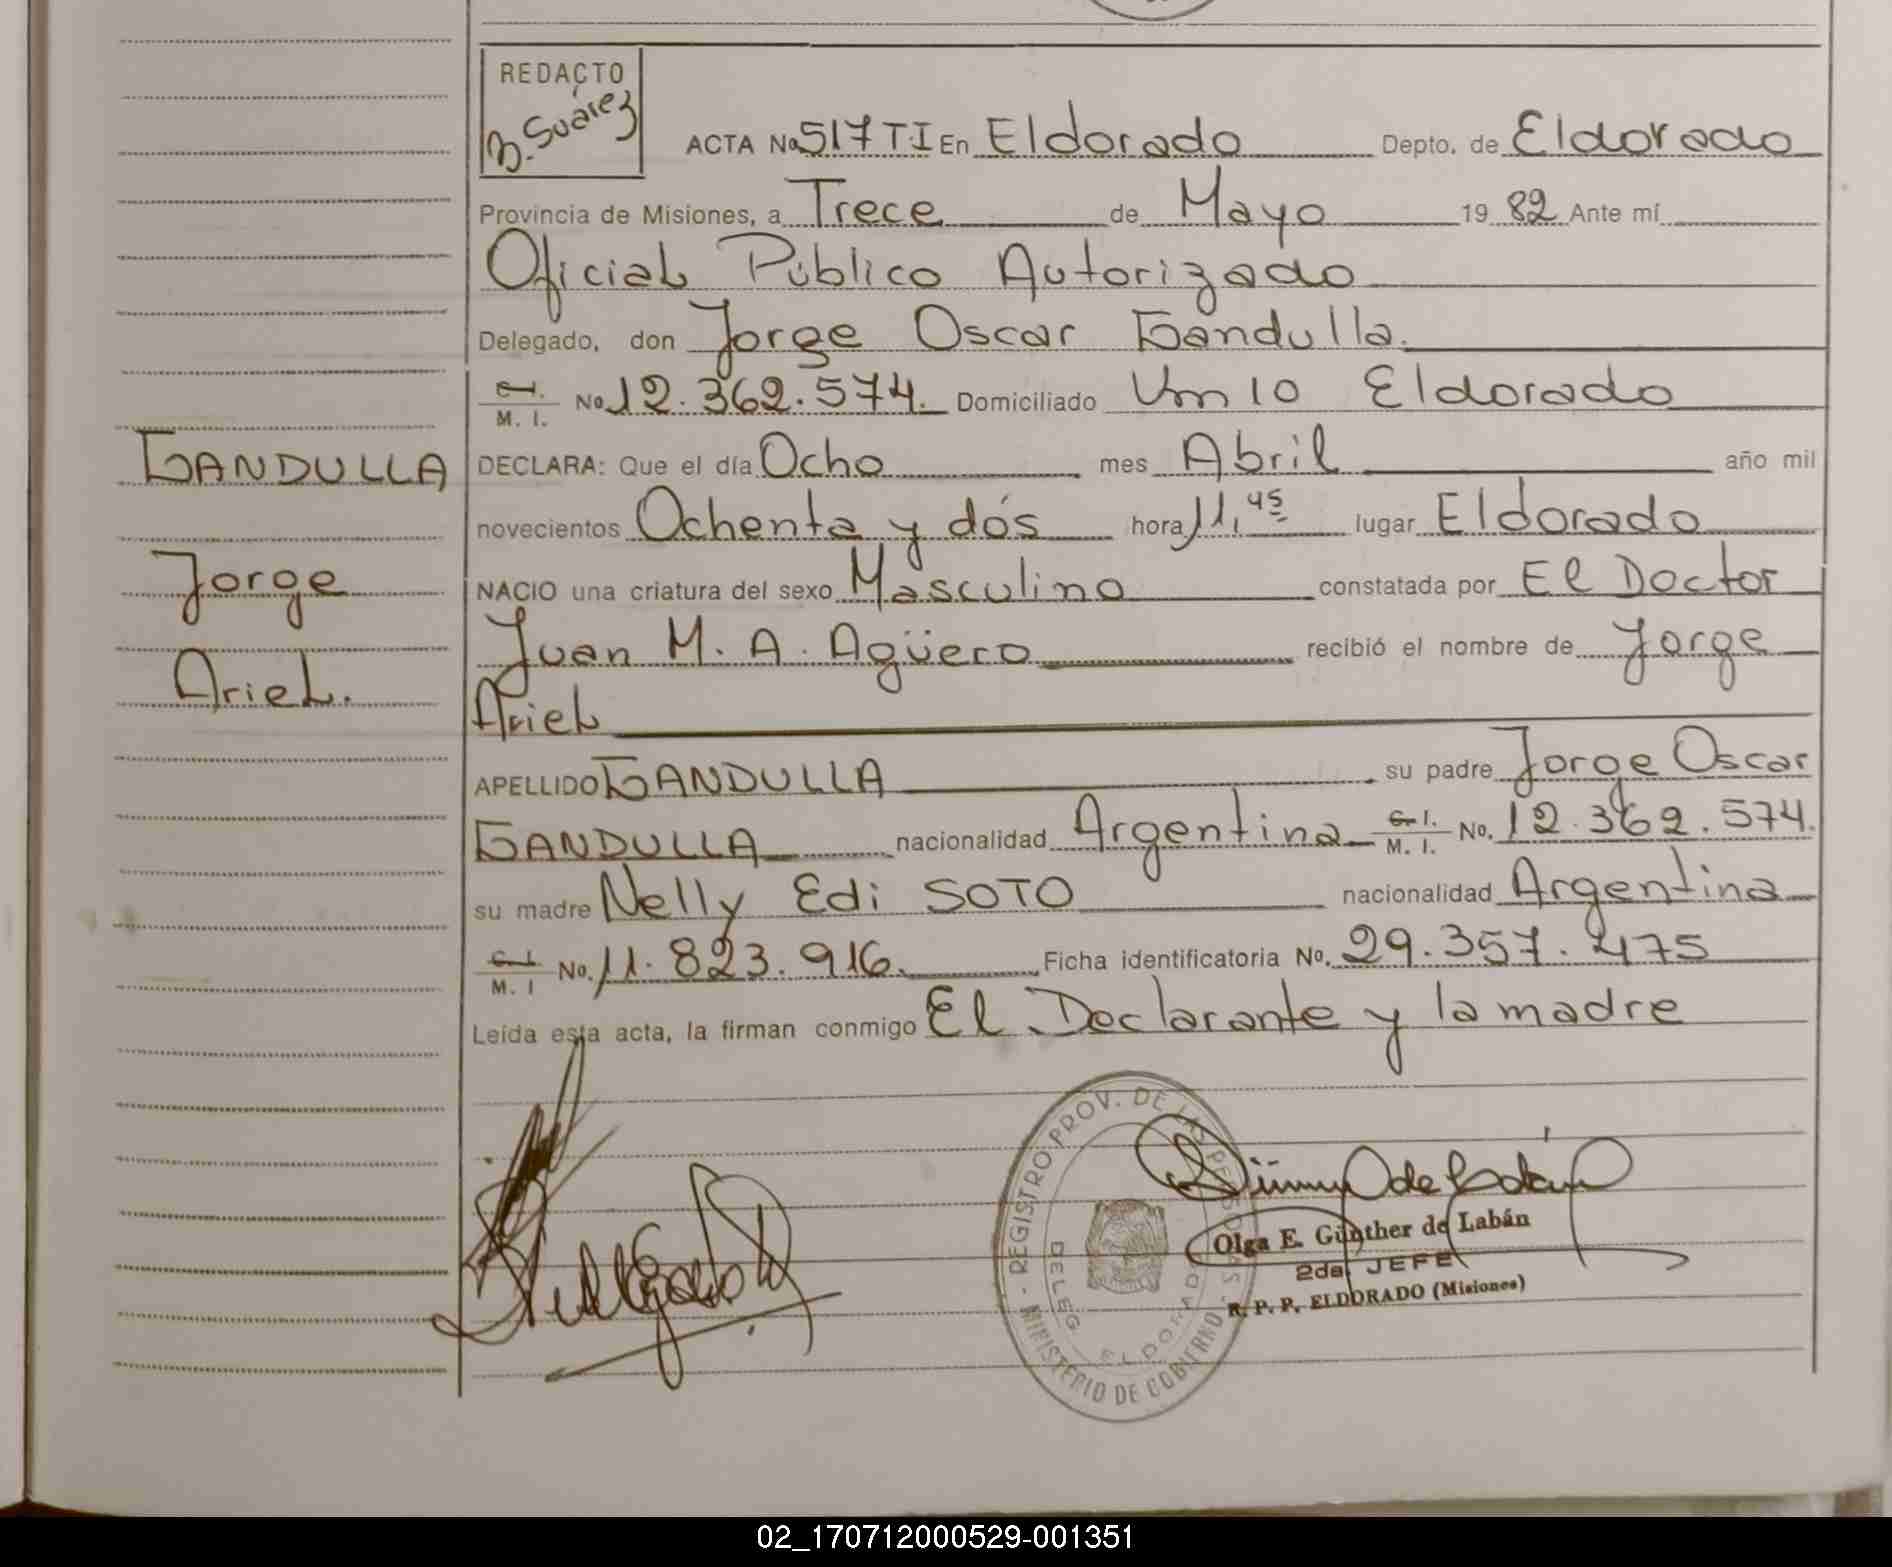 REDACTO
B. Suárez
ACTA No. 517 T·I En Eldorado Depto. de Eldorado
Provincia de Misiones, a Trece de Mayo 19 82 Ante mí
Oficial Público Autorizado
Delegado, don Jorge Oscar Gandulla.
C.I. M. I. No. 12.362.574. Domiciliado Km 10 Eldorado
GANDULLA
DECLARA: Que el día Ocho mes Abril año mil
novecientos Ochenta y dós hora 11,45 lugar Eldorado
Jorge
NACIO una criatura del sexo Masculino constatada por El Doctor
Juan M. A. Agüero recibió el nombre de Jorge
Ariel.
Ariel
APELLIDO GANDULLA su padre Jorge Oscar
GANDULLA nacionalidad Argentina C.I. M. I. No. 12.362.574.
su madre Nelly Edi SOTO nacionalidad Argentina
C.I. M. I No. 11.823.916. Ficha identificatoria No. 29.357.475
Leída esta acta, la firman conmigo El Declarante y la madre
REGISTRO PROV. DE LAS PERSONAS - MINISTERIO DE GOBIERNO -
DELEG. ELDORADO
Olga E. Günther de Labán
2da. JEFE
R. P. P. ELDORADO (Misiones)
02_170712000529-001351